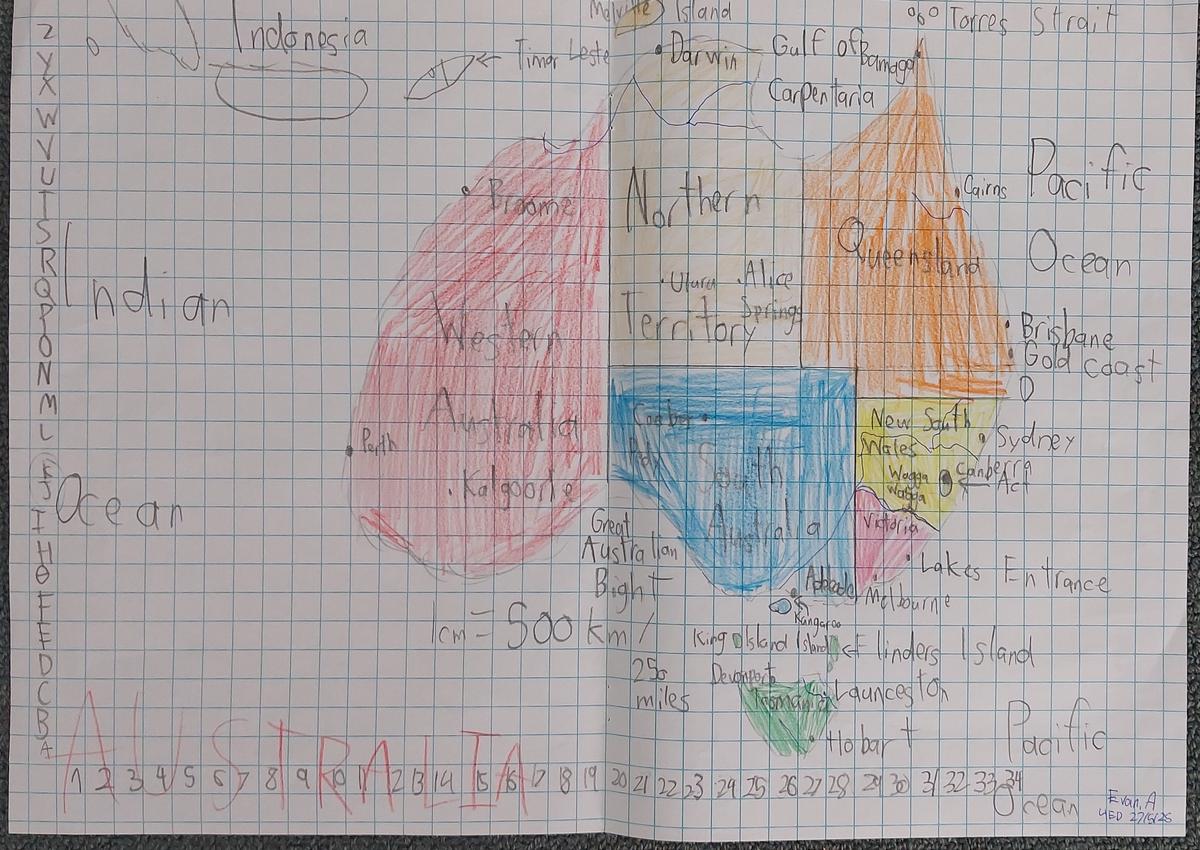 Melville Island
Torres Strait
Indonesia
Timor Leste
Darwin
Gulf of
Carpentaria
Bamaga
Z
Y
X
W
V
U
T
S
R
Q
P
O
N
M
L
K
J
I
H
G
F
E
D
C
B
A
Broome
Northern
Territory
Cairns
Pacific
Ocean
Queensland
Uluru
Alice
Springs
Indian
Ocean
Western
Australia
Brisbane
Gold Coast
Perth
Kalgoorlie
Coober
Pedy
South
Australia
New South
Wales
Sydney
Wagga
Wagga
Canberra
Act
Victoria
Great
Australian
Bight
Lakes Entrance
Adelaide
Melbourne
Kangaroo
Island
1cm = 500 km /
250
miles
King Island
Flinders Island
Devonport
Tasmania
Launceston
Hobart
Pacific
Ocean
AUSTRALIA
1 2 3 4 5 6 7 8 9 10 11 12 13 14 15 16 17 18 19 20 21 22 23 24 25 26 27 28 29 30 31 32 33 34
Evan.A